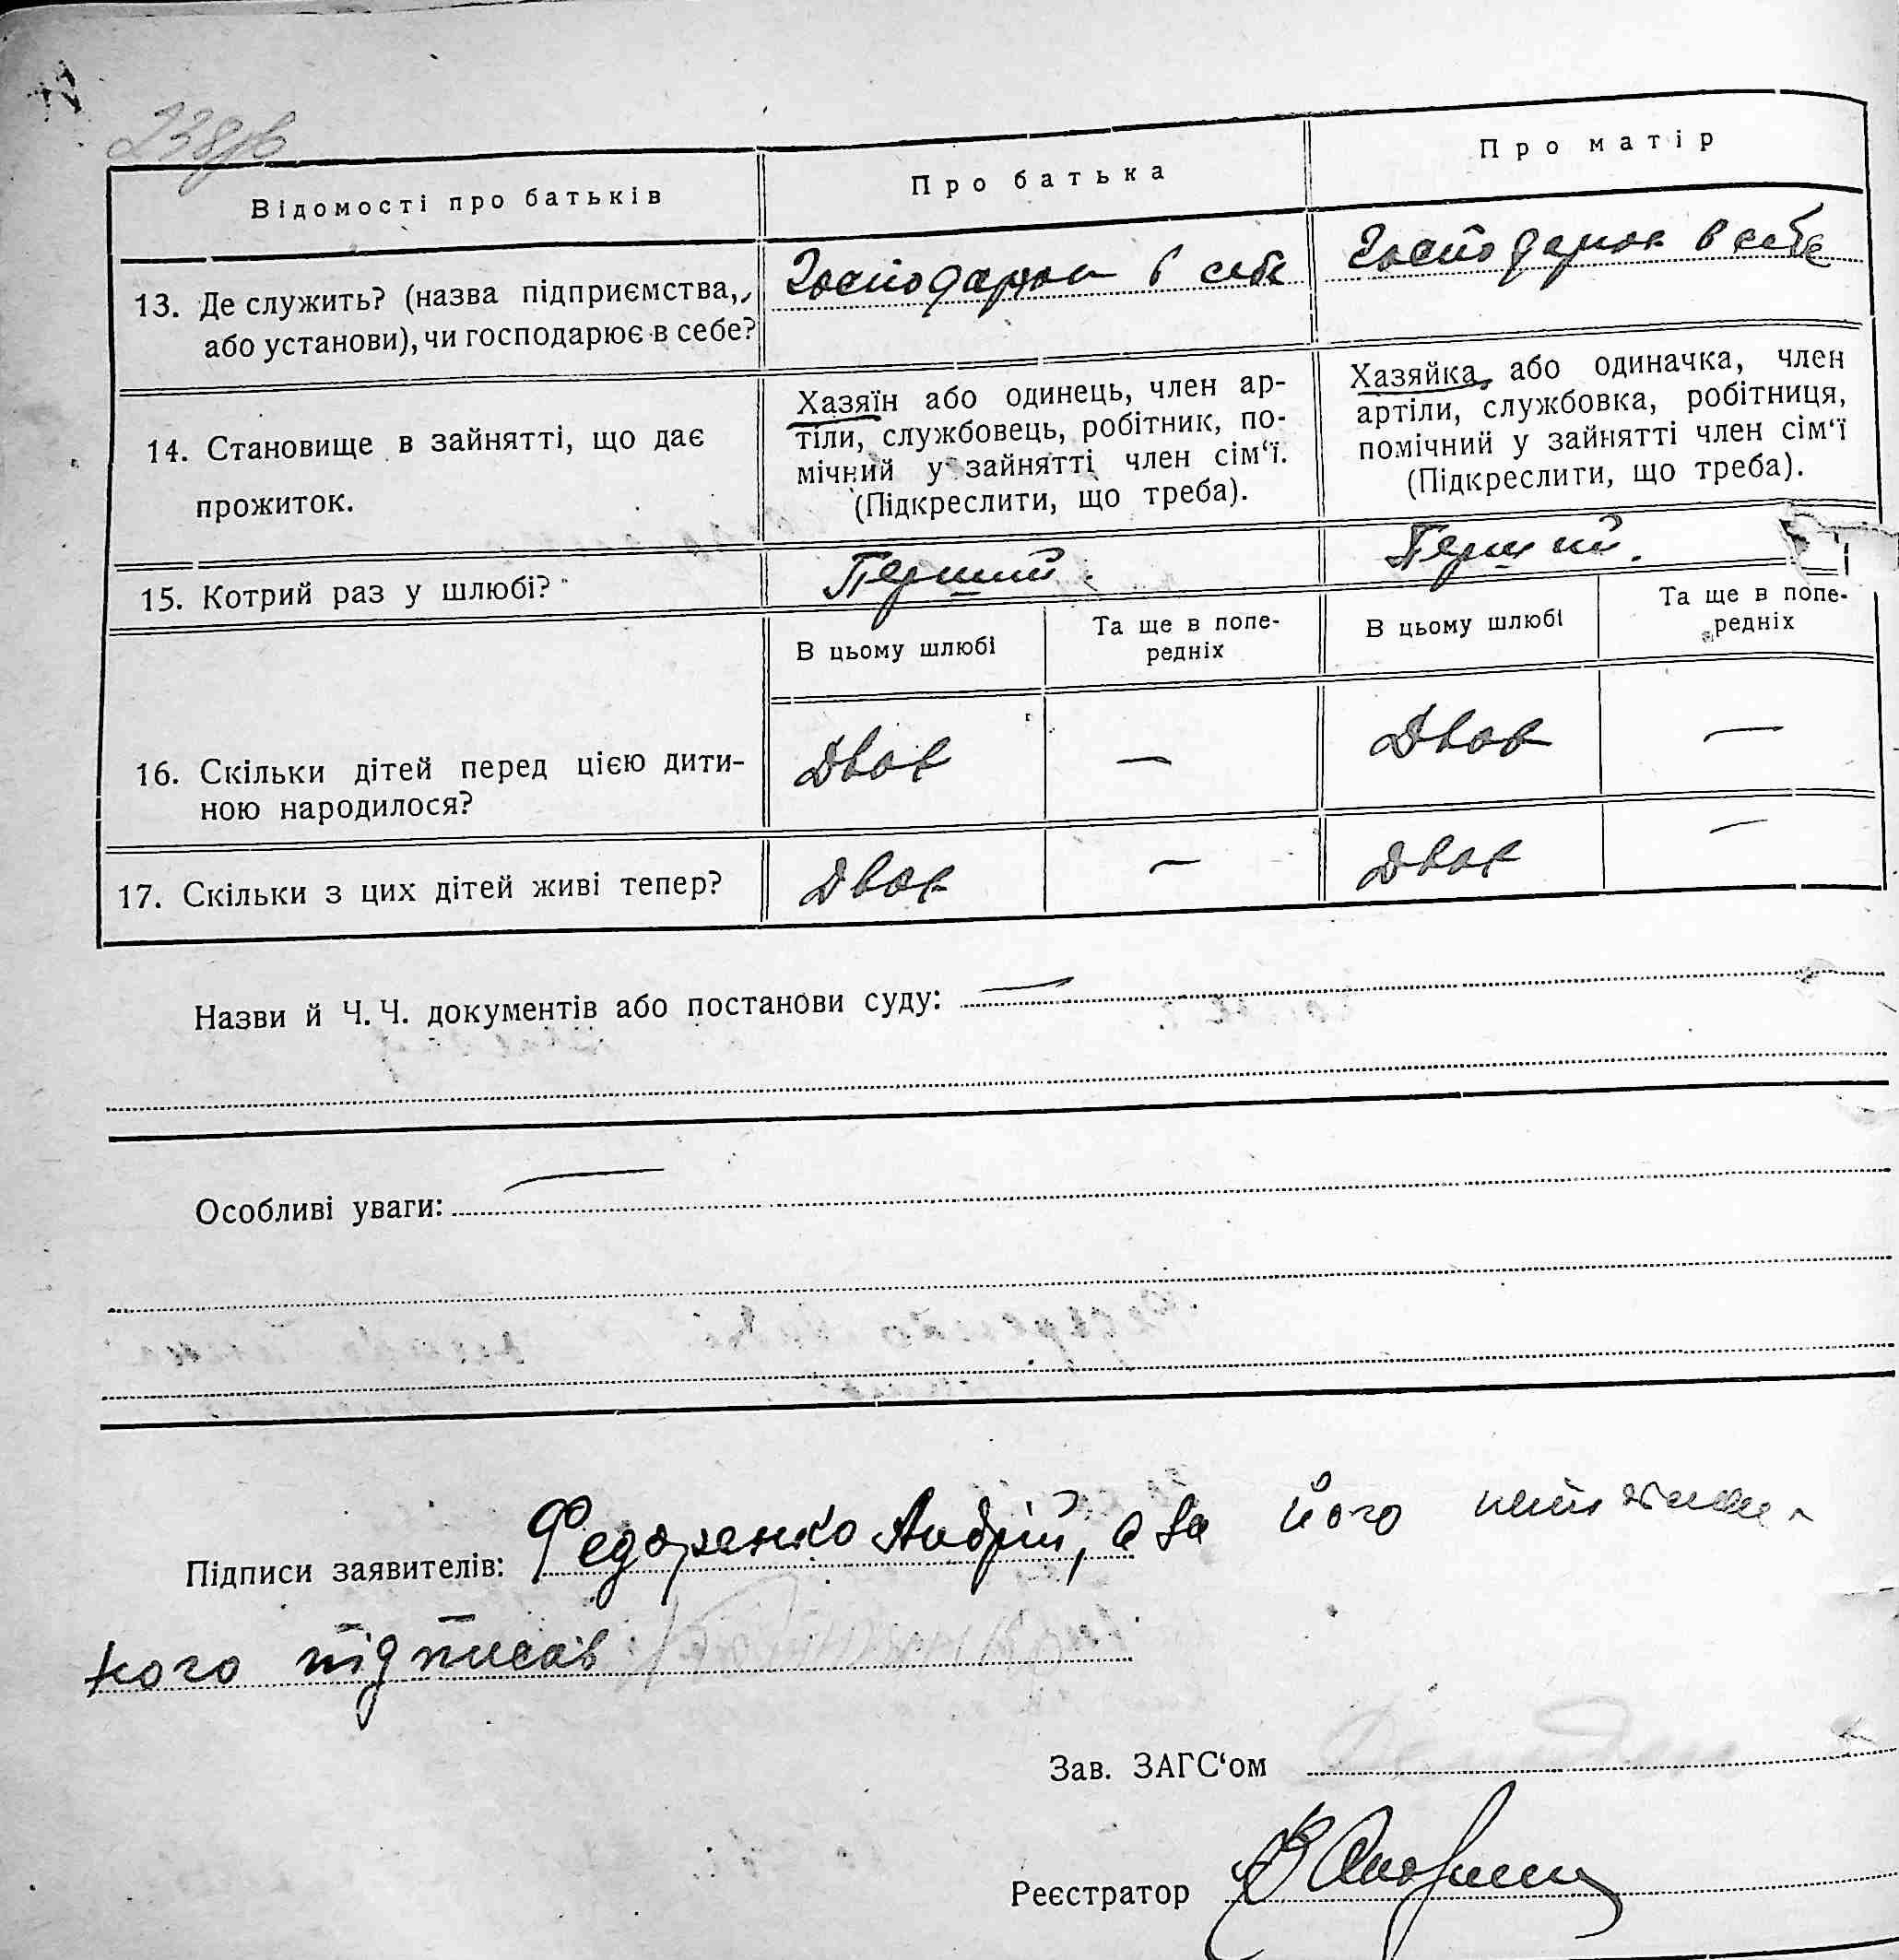 Відомості про батьків
Про батька
Про матір
13. Де служить? (назва підприємства, або установи), чи господарює в себе?
Господарює в себе
Господарює в себе
14. Становище в зайнятті, що дає прожиток.
Хазяїн або одинець, член ар-
тіли, службовець, робітник, по-
мічний у зайнятті член сім‘ї.
(Підкреслити, що треба).
Хазяйка, або одиначка, член
артіли, службовка, робітниця,
помічний у зайнятті член сім‘ї
(Підкреслити, що треба).
15. Котрий раз у шлюбі?
Перший
Перший.
В цьому шлюбі
Та ще в попе-
редніх
В цьому шлюбі
Та ще в попе-
редніх
16. Скільки дітей перед цією дити-
ною народилося?
Двоє
—
Двоє
—
17. Скільки з цих дітей живі тепер?
Двоє
—
Двоє
—
Назви й Ч. Ч. документів або постанови суду: —
Особливі уваги: —
Підписи заявителів: Федоренко Андрій, а за його неписьмен-
ного підписав
Зав. ЗАГС‘ом
Реєстратор